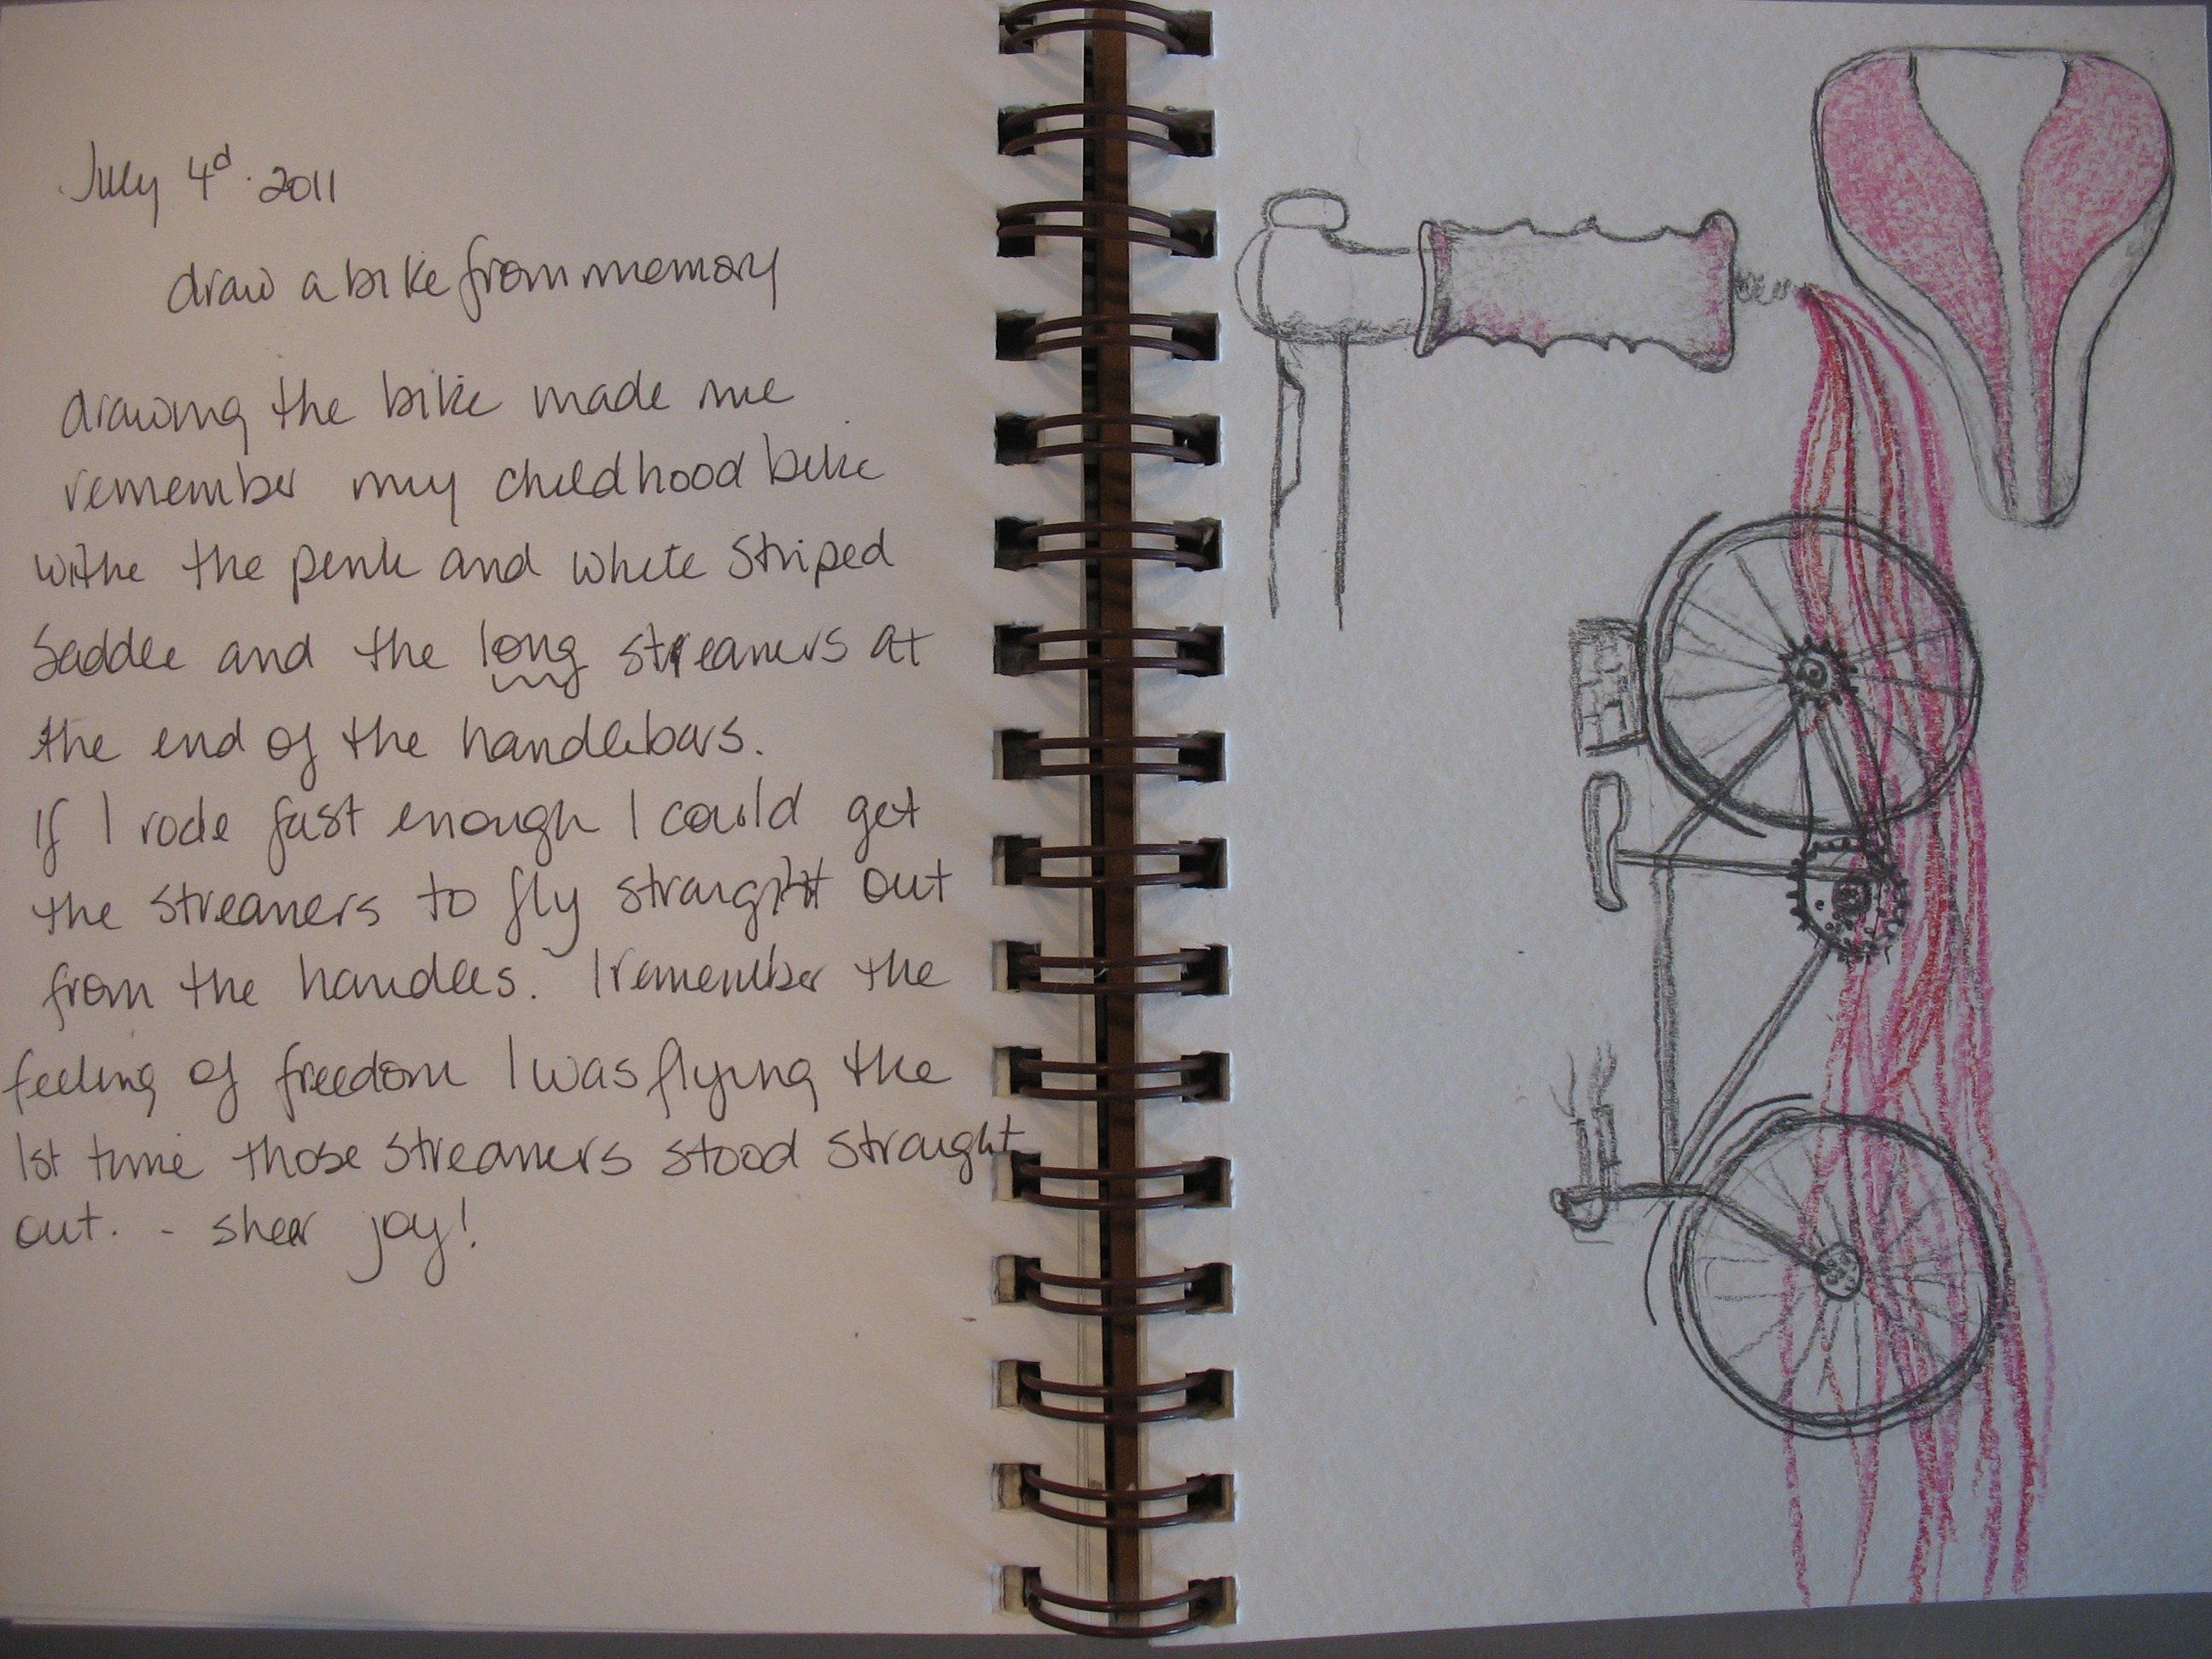 July 4d. 2011
draw a bike from memory
drawing the bike made me
remember my childhood bike
withe the pink and white striped
saddle and the long streamers at
the end of the handlebars.
If I rode fast enough I could get
the streamers to fly straight out
from the handles. I remember the
feeling of freedom I was flying the
1st time those streamers stood straight
out. - shear joy!